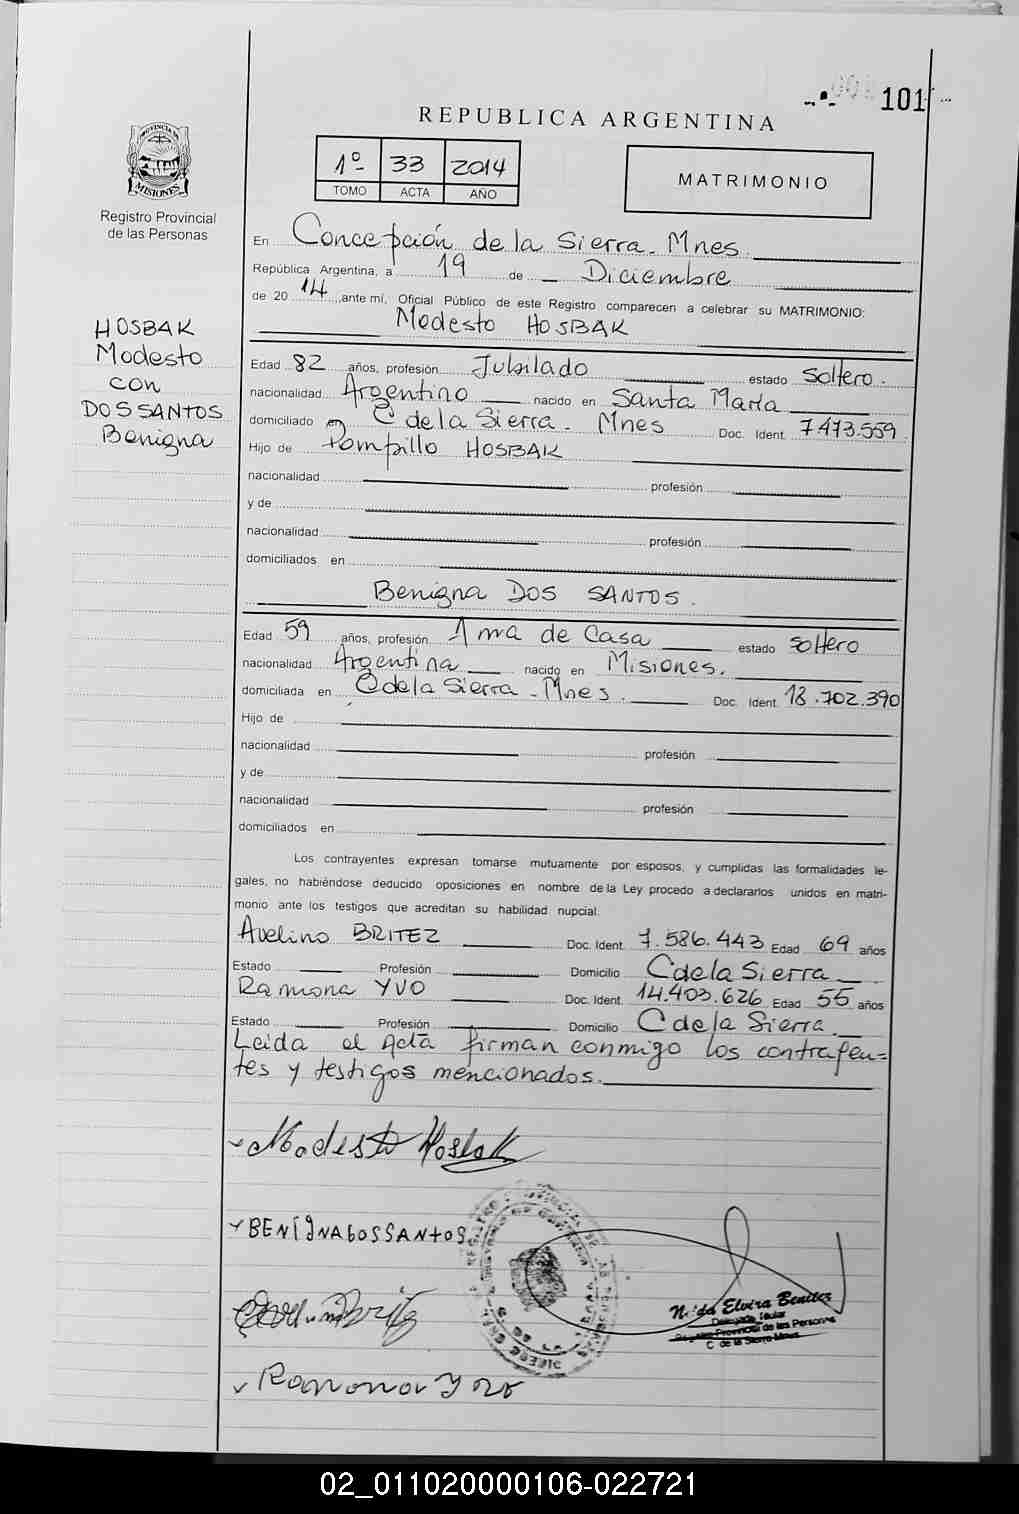 101
REPUBLICA ARGENTINA
PROVINCIA DE
MISIONES
Registro Provincial
de las Personas
1º 33 2014
TOMO ACTA AÑO
MATRIMONIO
HOSBAK
Modesto
con
DOS SANTOS
Benigna
En Concepción de la Sierra - Mnes.
República Argentina, a 19 de Diciembre
de 2014, ante mí, Oficial Público de este Registro comparecen a celebrar su MATRIMONIO:
Modesto HOSBAK
Edad 82 años, profesión Jubilado estado Soltero.
nacionalidad Argentino nacido en Santa María
domiciliado en C de la Sierra - Mnes Doc. Ident. 7473.559
Hijo de Pompillo HOSBAK
nacionalidad profesión
y de
nacionalidad profesión
domiciliados en
Benigna DOS SANTOS.
Edad 59 años, profesión Ama de Casa estado soltero
nacionalidad Argentina nacido en Misiones.
domiciliada en C de la Sierra - Mnes. Doc. Ident. 18.702.390
Hijo de
nacionalidad profesión
y de
nacionalidad profesión
domiciliados en
Los contrayentes expresan tomarse mutuamente por esposos, y cumplidas las formalidades le-
gales, no habiéndose deducido oposiciones en nombre de la Ley procedo a declararlos unidos en matri-
monio ante los testigos que acreditan su habilidad nupcial:
Avelino BRITEZ Doc. Ident. 7.586.443 Edad 69 años
Estado Profesión Domicilio C de la Sierra
Ramona YVO Doc. Ident. 14.403.626 Edad 55 años
Estado Profesión Domicilio C de la Sierra.
Leida el Acta firman conmigo los contrayen=
tes y testigos mencionados.
Modesto Hosbak
BENIGNA DOS SANTOS
Nilda Elvira Benitez
Delegada Titular
Registro Provincial de las Personas
C. de la Sierra-Mnes.
Ramona Yvo
02_011020000106-022721